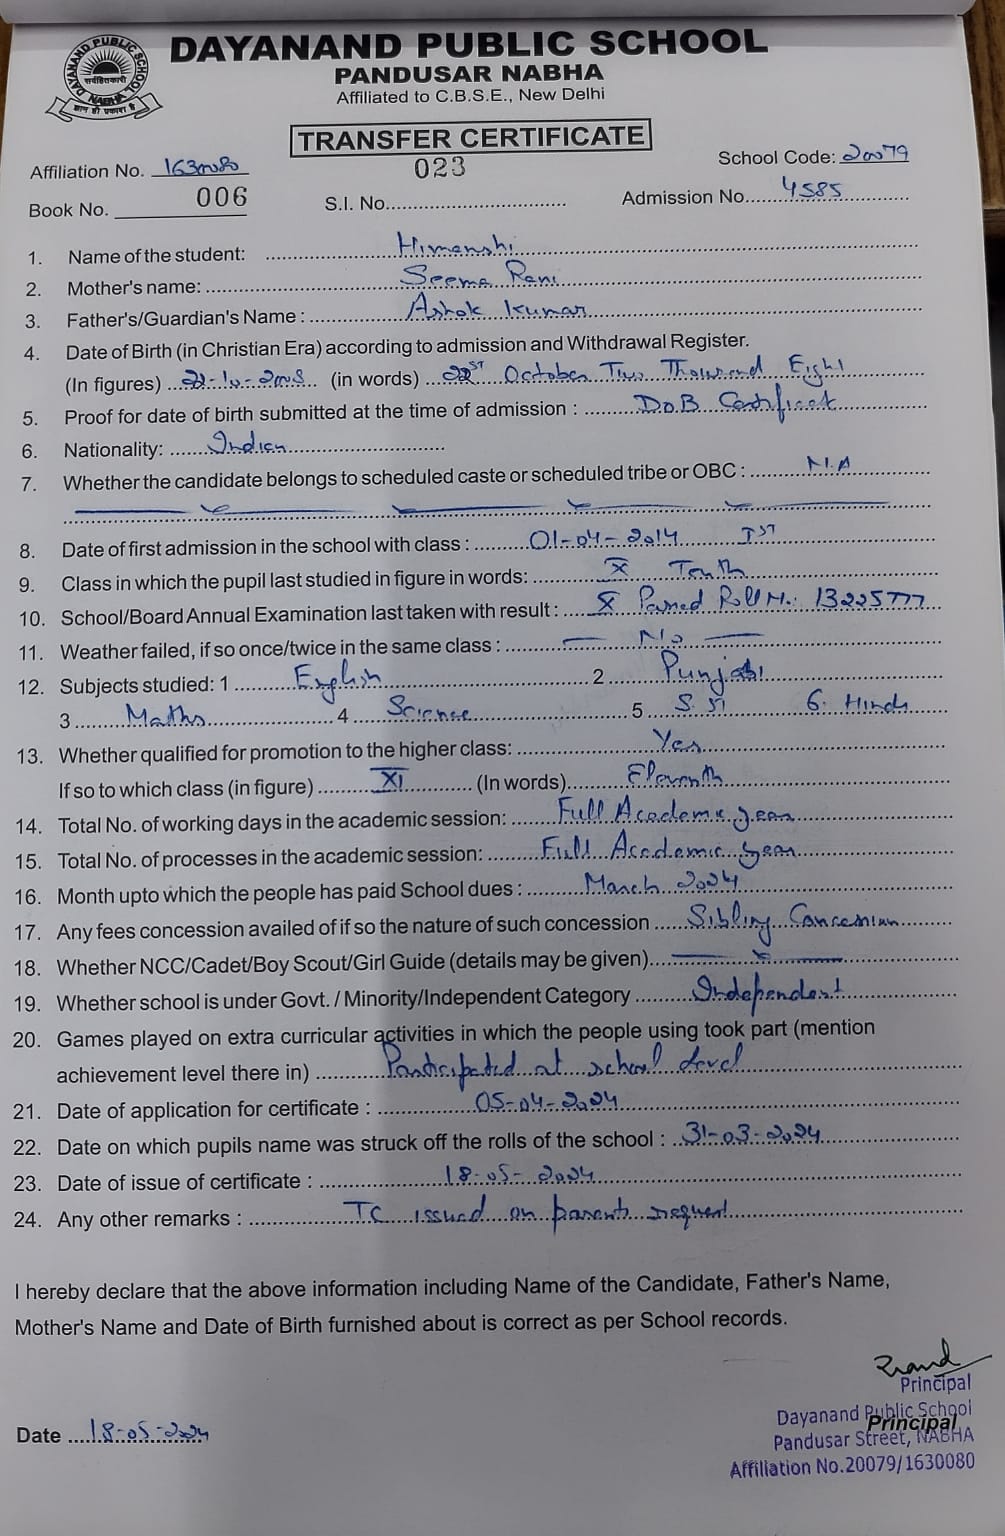 DAYANAND PUBLIC SCHOOL
PANDUSAR NABHA
Affiliated to C.B.S.E., New Delhi
DAYANAND PUBLIC SCHOOL
NABHA
TRANSFER CERTIFICATE
Affiliation No. 1630080 023 School Code: 20079
Book No. 006 S.I. No. Admission No. 4585
1. Name of the student: Himanshi
2. Mother's name: Seema Rani
3. Father's/Guardian's Name : Ashok Kumar
4. Date of Birth (in Christian Era) according to admission and Withdrawal Register.
(In figures) 22-10-2008 (in words) October Two Thousand Eight
5. Proof for date of birth submitted at the time of admission : DoB Certificate
6. Nationality: Indian
7. Whether the candidate belongs to scheduled caste or scheduled tribe or OBC : N.A
8. Date of first admission in the school with class : 01-04-2014 IST
9. Class in which the pupil last studied in figure in words: X Tenth
10. School/Board Annual Examination last taken with result : X Passed Roll No. 13225777
11. Weather failed, if so once/twice in the same class : No
12. Subjects studied: 1 English 2 Punjabi
3 Maths 4 Science 5 S.St 6. Hindi
13. Whether qualified for promotion to the higher class: Yes
If so to which class (in figure) XI (In words) Eleventh
14. Total No. of working days in the academic session: Full Academic year
15. Total No. of processes in the academic session: Full Academic year
16. Month upto which the people has paid School dues : March 2024
17. Any fees concession availed of if so the nature of such concession Sibling Concession
18. Whether NCC/Cadet/Boy Scout/Girl Guide (details may be given)
19. Whether school is under Govt. / Minority/Independent Category Independent
20. Games played on extra curricular activities in which the people using took part (mention
achievement level there in) Participated at school level
21. Date of application for certificate : 05-04-2024
22. Date on which pupils name was struck off the rolls of the school : 31-03-2024
23. Date of issue of certificate : 18-05-2024
24. Any other remarks : TC issued on parents request
I hereby declare that the above information including Name of the Candidate, Father's Name,
Mother's Name and Date of Birth furnished about is correct as per School records.
Principal
Dayanand Public School
Principal
Pandusar Street, NABHA
Affiliation No.20079/1630080
Date 18-05-2024